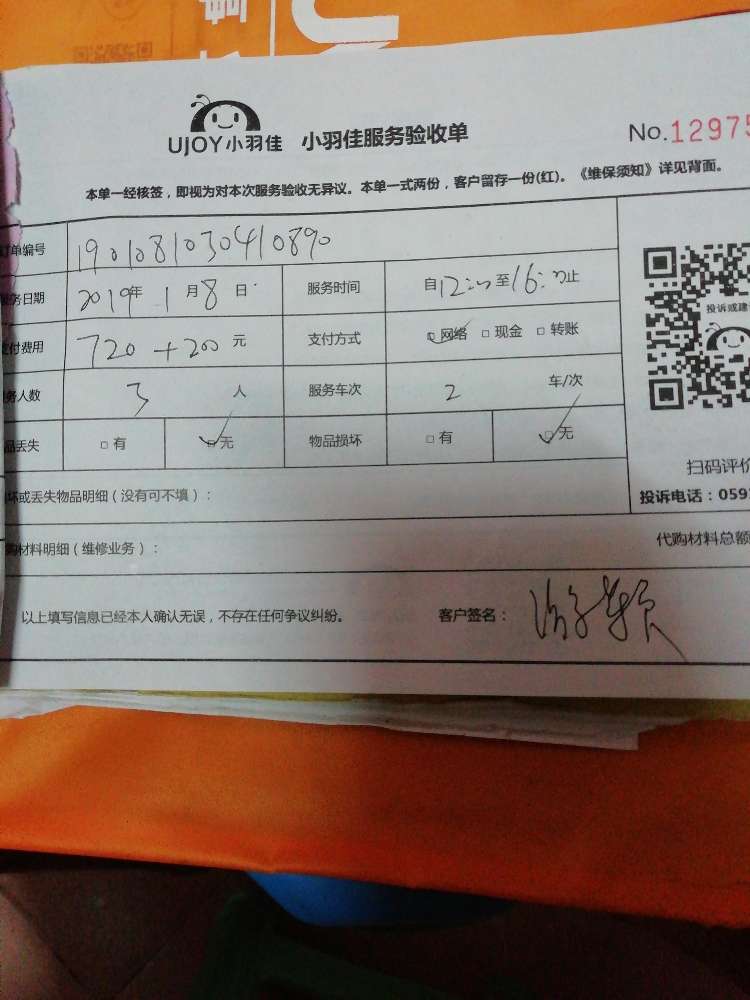 UJOY小羽佳 小羽佳服务验收单 No.12975
本单一经核签，即视为对本次服务验收无异议。本单一式两份，客户留存一份(红)。《维保须知》详见背面。
订单编号 1901081030410890
服务日期 2019年1月8日 服务时间 自12:00至16:00止
支付费用 720+200元 支付方式 网络 现金 转账
服务人数 3人 服务车次 2车/次
品丢失 有 无 物品损坏 有 无
投诉或建
扫码评价
坏或丢失物品明细（没有可不填）：
投诉电话：059
购材料明细（维修业务）： 代购材料总额
以上填写信息已经本人确认无误，不存在任何争议纠纷。 客户签名：